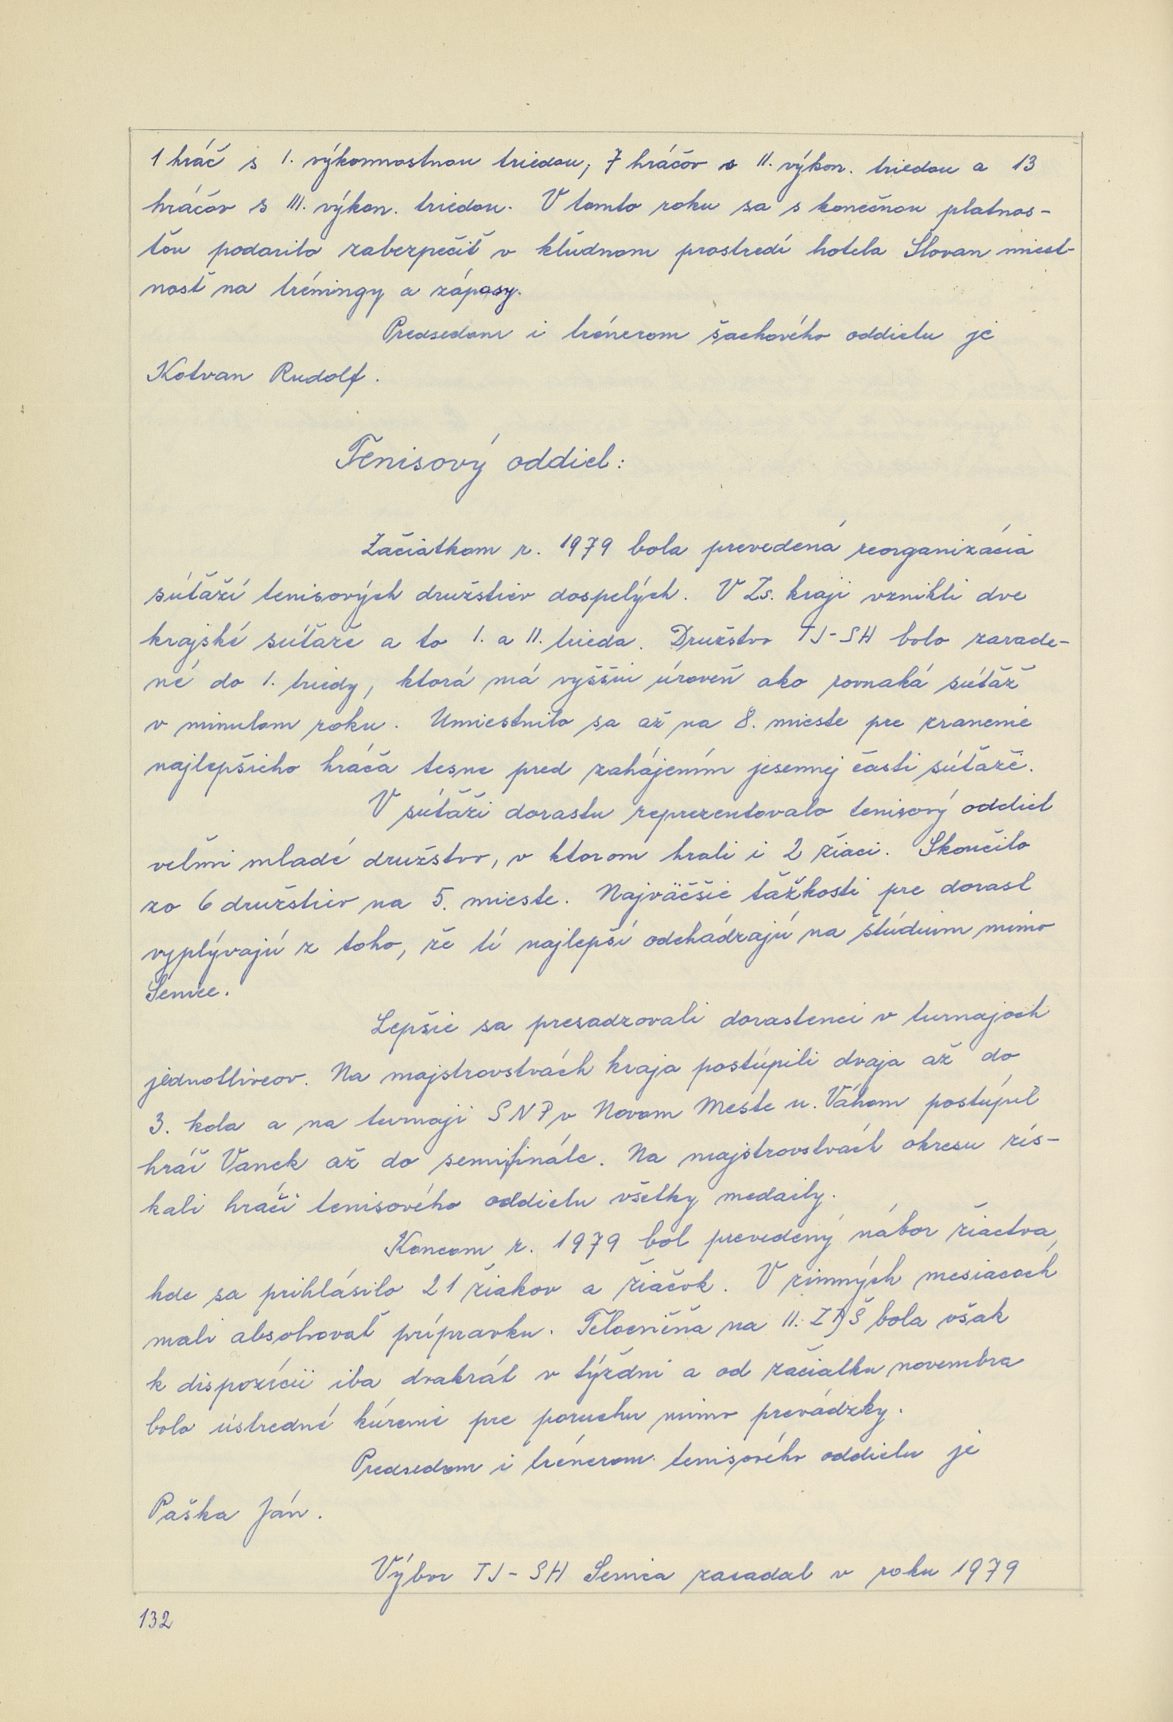 1 hráč s I. výkonnostnou triedou, 7 hráčov s II. výkon. triedou a 13
hráčov s III. výkon. triedou. V tomto roku sa s konečnou platnos-
ťou podarilo zabezpečiť v kľudnom prostredí hotela Slovan miest-
nosť na tréningy a zápasy.
Predsedom i trénerom šachového oddielu je
Kotvan Rudolf.
Tenisový oddiel:
Začiatkom r. 1979 bola prevedená reorganizácia
súťaží tenisových družstiev dospelých. V Zs. kraji vznikli dve
krajské súťaže a to I. a II. trieda. Družstvo TJ-SH bolo zarade-
né do I. triedy, ktorá má vyššiu úroveň ako rovnaká súťaž
v minulom roku. Umiestnilo sa až na 8. mieste pre zranenie
najlepšieho hráča tesne pred zahájením jesennej časti súťaže.
V súťaži dorastu reprezentovalo tenisový oddiel
veľmi mladé družstvo, v ktorom hrali i 2 žiaci. Skončilo
zo 6 družstiev na 5. mieste. Najväčšie ťažkosti pre dorast
vyplývajú z toho, že tí najlepší odchádzajú na štúdium mimo
Senice.
Lepšie sa presadzovali dorastenci v turnajoch
jednotlivcov. Na majstrovstvách kraja postúpili dvaja až do
3. kola a na turnaji SNP v Novom Meste n. Váhom postúpil
hráč Vanek až do semifinále. Na majstrovstvách okresu zís-
kali hráči tenisového oddielu všetky medaily.
Koncom r. 1979 bol prevedený nábor žiactva,
kde sa prihlásilo 21 žiakov a žiačok. V zimných mesiacoch
mali absolvovať prípravku. Telocvičňa na II. ZDŠ bola však
k dispozícii iba dvakrát v týždni a od začiatku novembra
bolo ústredné kúrenie pre poruchu mimo prevádzky.
Predsedom i trénerom tenisového oddielu je
Paška Ján.
Výbor TJ-SH Senica zasadal v roku 1979
132